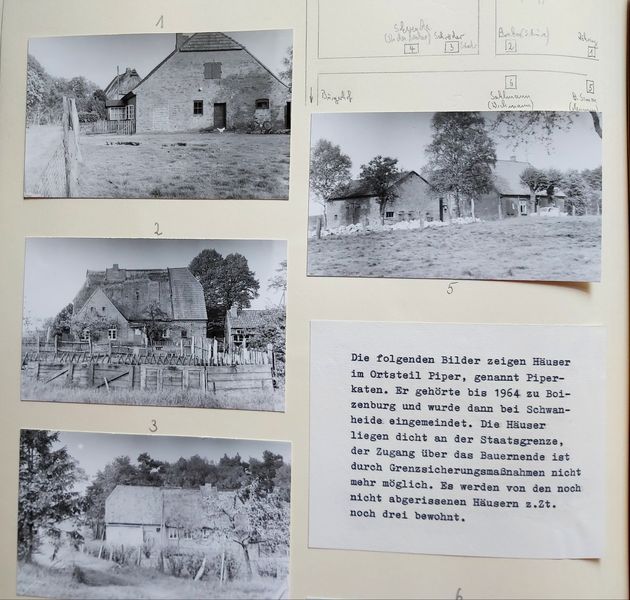 1
Schröder
4
3
2
1
6
5
Sahlmann
2
5
Die folgenden Bilder zeigen Häuser
im Ortsteil Piper, genannt Piper-
katen. Er gehörte bis 1964 zu Boi-
zenburg und wurde dann bei Schwan-
heide eingemeindet. Die Häuser
liegen dicht an der Staatsgrenze,
der Zugang über das Bauernende ist
durch Grenzsicherungsmaßnahmen nicht
mehr möglich. Es werden von den noch
nicht abgerissenen Häusern z.Zt.
noch drei bewohnt.
3
6